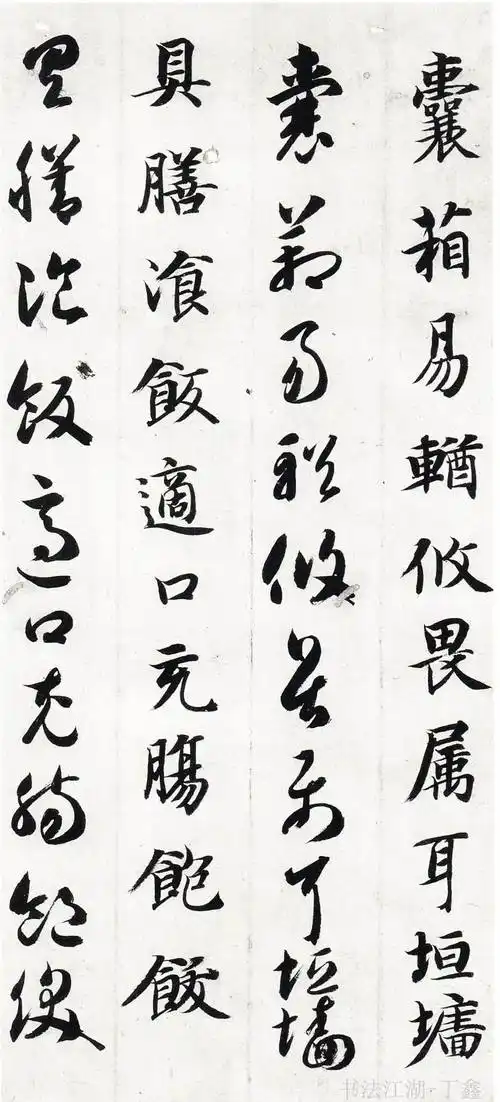 囊箱易輶攸畏属耳垣墻
囊箱易輶攸畏属耳垣墻
具膳湌飯適口充腸飽飫
具膳湌飯適口充腸飽飫
书法江湖·丁鑫